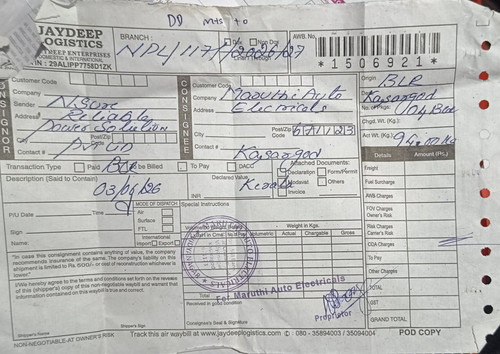 DD mts to
JAYDEEP
LOGISTICS
JAYDEEP ENTERPRISES
DOMESTIC & INTERNATIONAL
29ALIPP7758D1ZK
BRANCH :
Dox Non Dox
AWB. No.
*1506921*
NPL/117/2026/27
CONSIGNOR
Customer Code
Company
Sender
Address
Nsure
Reliable
Power Solution
City
Post/Zip Code
Contact #
Pvt LTD
CONSIGNEE
Customer Code
Company
Address
Maruthi Auto
Electricals
City
Post/Zip Code
671123
Contact #
Kasargod
Origin
BLR
Kasargod
No. of Pkgs:
Chgd. Wt. (Kg.)
Act Wt. (Kg.)
Transaction Type
Paid
to be Billed
To Pay
DACC
Attached Documents:
Declaration
Form/Permit
Others
Invoice
Description (Said to Contain)
Declared Value
INR
Kerala
03/06/26
Details
Amount (Rs.)
Freight
Fuel Surcharge
AWB Charges
FOV Charges
Owner's Risk
Risk Charges
Carrier's Risk
COA Charges
To Pay
Other Charges
TOTAL
GST
GRAND TOTAL
P/U Date
Time
Sign
Name
MODE OF DISPATCH
Air
Surface
FTL
International
Import
Export
Special Instructions
Weight in Kgs.
Volumetric
Actual
Chargeable
Gross
"In case this consignment contains anything of value, the company
recommends insurance of the same. The company's liability on this
shipment is limited to Rs. 500/- or cost of reconstruction whichever is
lower."
I/We hereby agree to the terms and conditions set forth on the reverse
of this (shipper's copy) of this non-negotiable waybill and warrant that
information contained on this waybill is true and correct.
Total
Received in good condition
For Maruthi Auto Electricals
Proprietor
Shipper's Name
Shipper's Sign
Consignee's Seal & Signature
NON-NEGOTIABLE-AT OWNER'S RISK
Track this air waybill at www.jaydeeplogistics.com
080 - 35894003 / 35094004
POD COPY